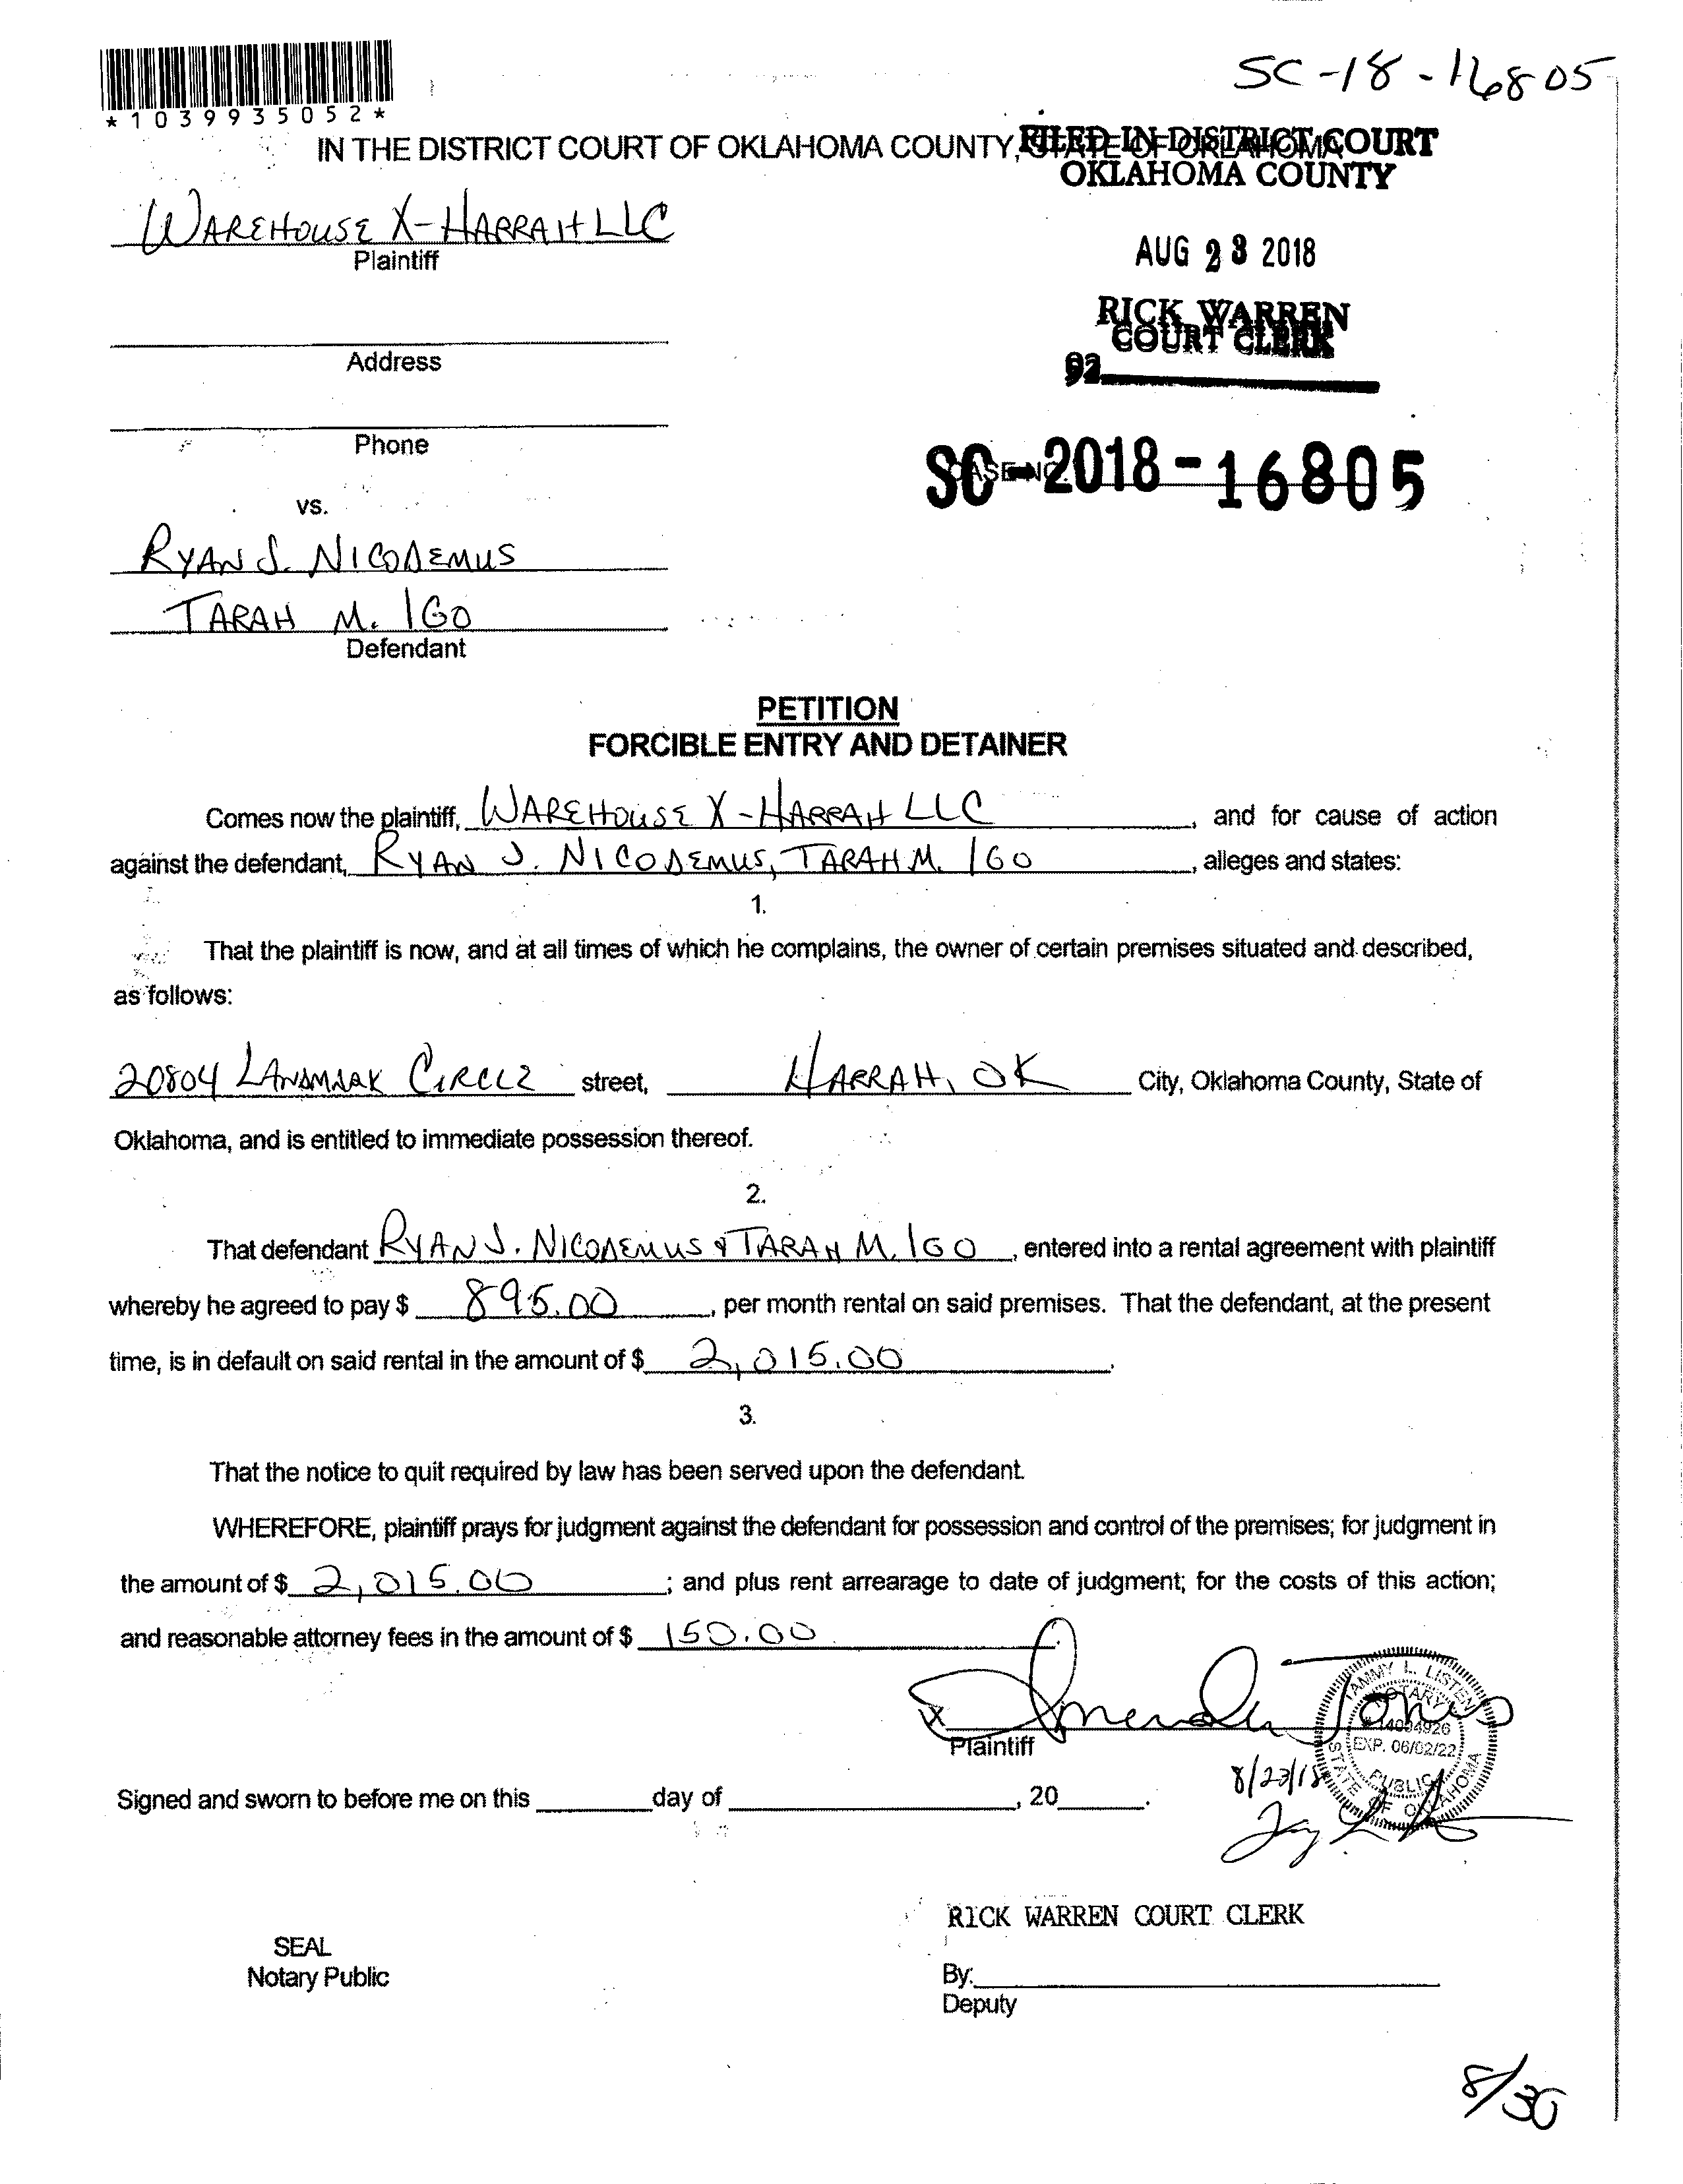 SC-18-16805
*1039935052*
IN THE DISTRICT COURT OF OKLAHOMA COUNTY, STATE OF OKLAHOMA
FILED IN DISTRICT COURT
OKLAHOMA COUNTY
WAREHOUSE X-HARRAH LLC
Plaintiff
AUG 23 2018
RICK WARREN
COURT CLERK
Address
92
Phone
CASE NO.
SC-2018-16805
vs.
RYAN J. NICODEMUS
TARAH M. IGO
Defendant
PETITION
FORCIBLE ENTRY AND DETAINER
Comes now the plaintiff, WAREHOUSE X-HARRAH LLC, and for cause of action
against the defendant, RYAN J. NICODEMUS, TARAH M. IGO, alleges and states:
1.
That the plaintiff is now, and at all times of which he complains, the owner of certain premises situated and described,
as follows:
20804 LANDMARK CIRCLE street, HARRAH, OK City, Oklahoma County, State of
Oklahoma, and is entitled to immediate possession thereof.
2.
That defendant RYAN J. NICODEMUS & TARAH M. IGO, entered into a rental agreement with plaintiff
whereby he agreed to pay $ 895.00, per month rental on said premises. That the defendant, at the present
time, is in default on said rental in the amount of $ 2,015.00.
3.
That the notice to quit required by law has been served upon the defendant.
WHEREFORE, plaintiff prays for judgment against the defendant for possession and control of the premises; for judgment in
the amount of $ 2,015.00; and plus rent arrearage to date of judgment; for the costs of this action;
and reasonable attorney fees in the amount of $ 150.00.
X
Plaintiff
TAMMY L. LISTEN
NOTARY
# 14004926
EXP. 06/02/22
PUBLIC
STATE OF OKLAHOMA
8/23/18
Signed and sworn to before me on this ____ day of ____, 20____.
RICK WARREN COURT CLERK
SEAL
Notary Public
By:
Deputy
8/30